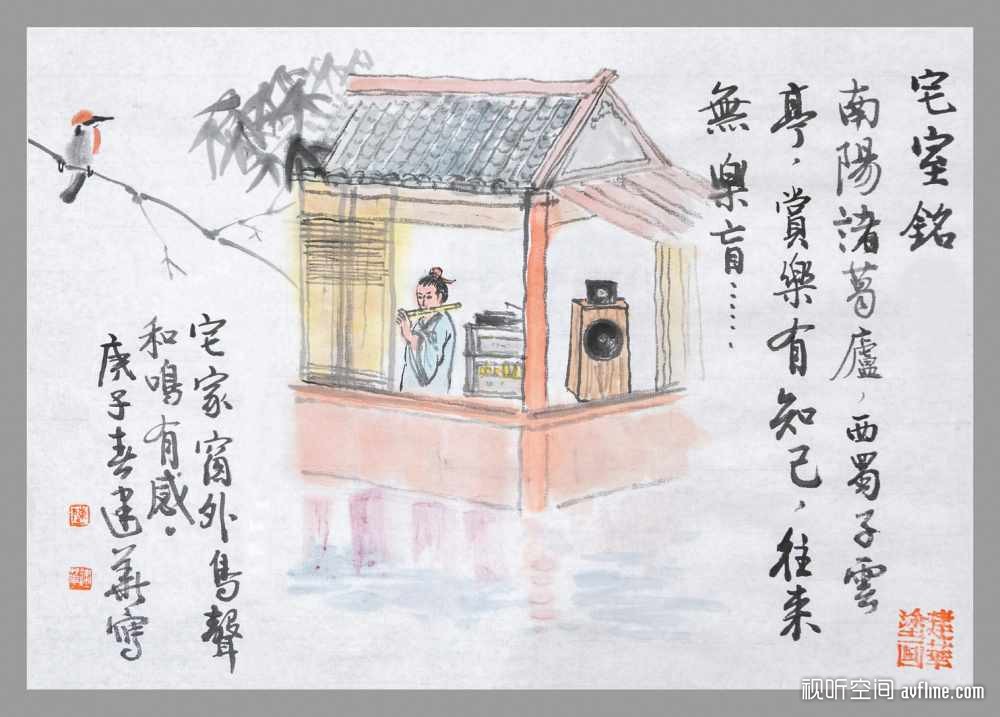 宅室銘
南陽諸葛廬，西蜀子雲
亭，賞樂有知己，往来
無樂盲……
宅家窗外鳥聲
和鳴有感。
庚子春建華寫
建華
塗画
视听空间 avfline.com